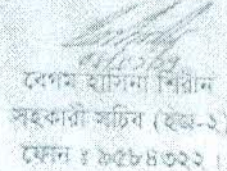 বেগম হাসিনা শিরীন
সহকারী সচিব (ইজ-২)
ফোন : ৯৫৮৪৩২২ ।